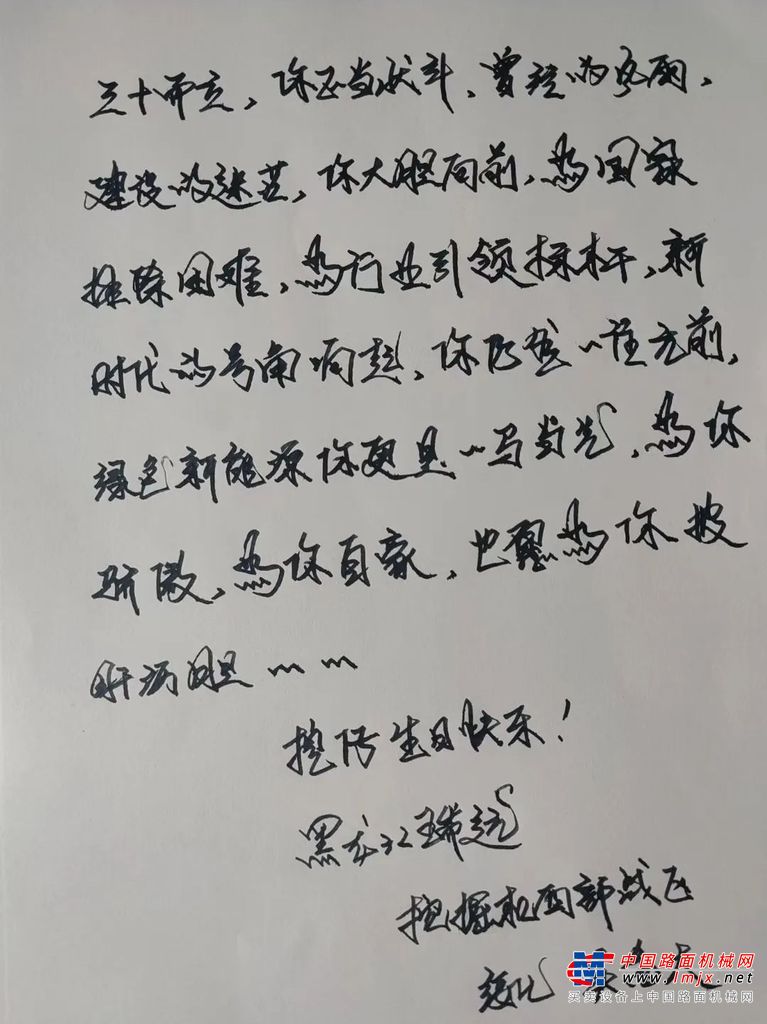 三十而立，你正当，曾经的风雨，
建设的迷茫，你大胆向前，为国家
排除困难，为行业引领标杆，新
时代的号角响起，你一往无前，
绿色新能源你更是一马当先，为你
骄傲，为你自豪，也愿为你披
肝沥胆……
生日快乐！
黑龙江瑞远
挖掘机西部战区
绥化
中国路面机械网
www.lmjx.net
买卖设备上中国路面机械网